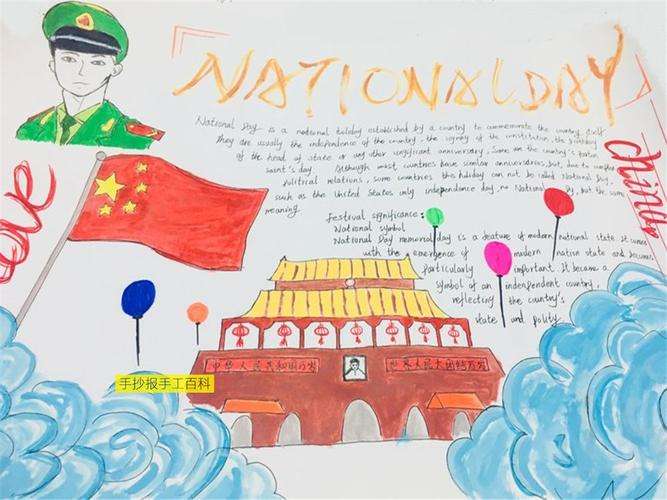 NATIONAL DAY
National Day is a national holiday established by a country to commemorate the country itself
They are usually the independence of the country, the signing of the constitution, the birthday
of the head of state or any other significant anniversary; Some are the country's patron
saint's day. Although most countries have similar anniversaries, but, due to complex
political relations, some countries this holiday can not be called National Day,
such as the United States only independence day, no National Day, but the same
meaning.
Festival significance:
National symbol
National Day memorial day is a feature of modern national state. It comes
with the emergence of modern nation state and becomes
particularly important. It became a
symbol of an independent country,
reflecting the country's
state and polity.
love
china
中华人民共和国万岁
世界人民大团结万岁
手抄报手工百科